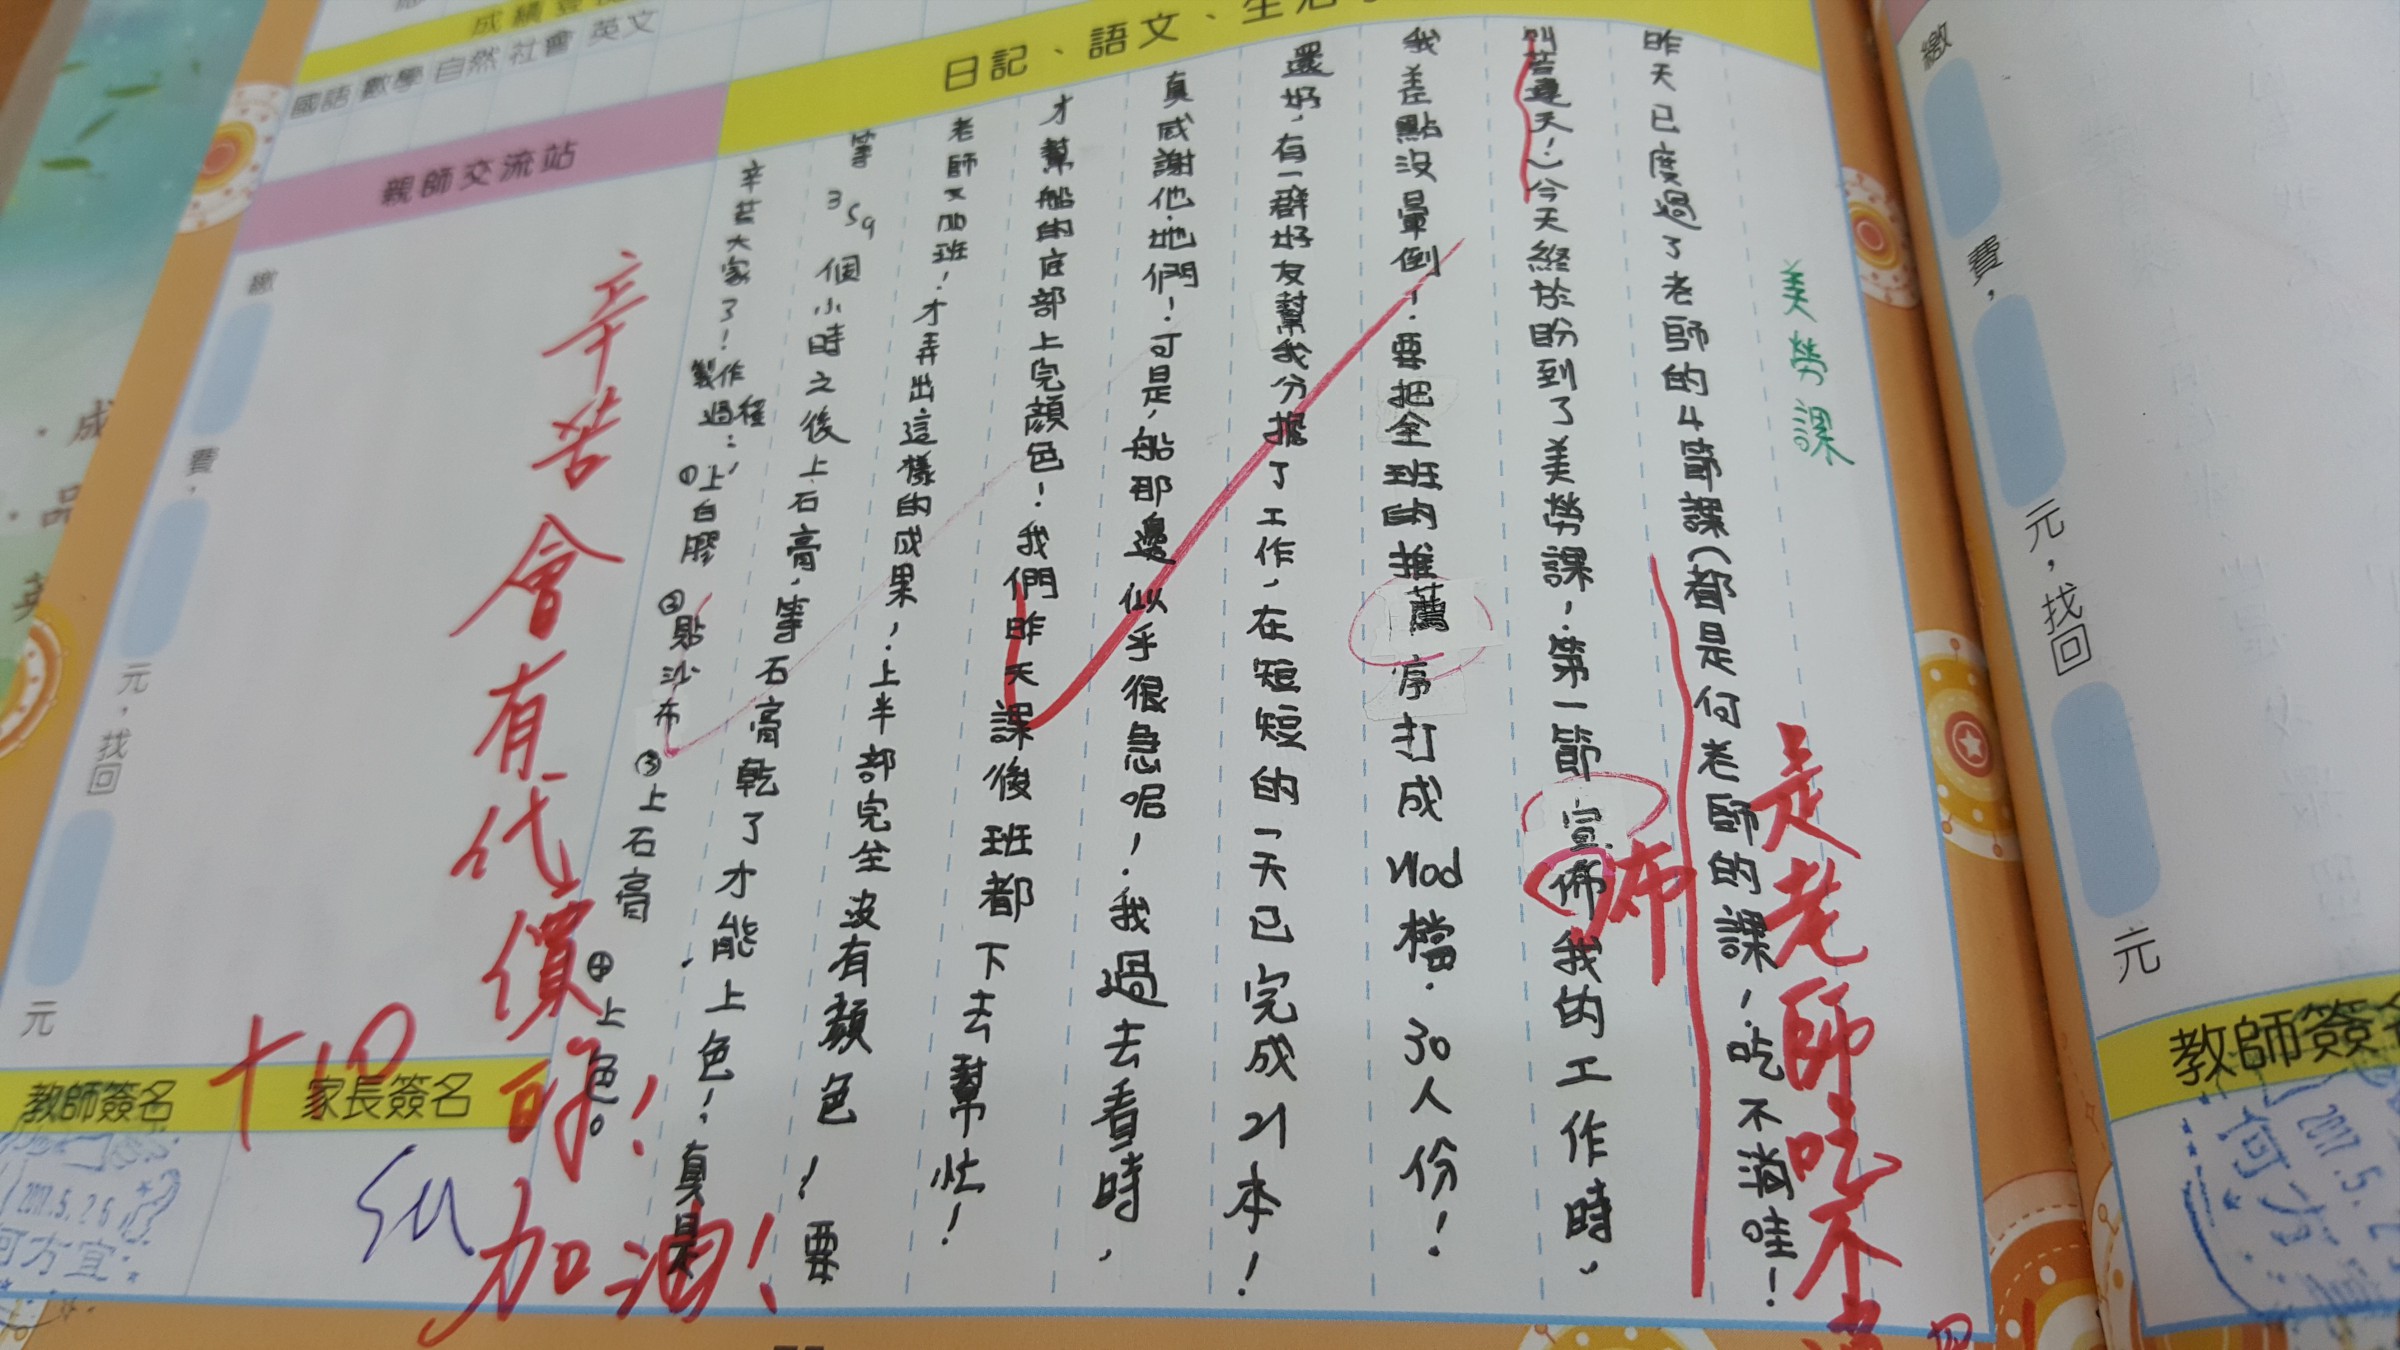 成績登
國語 數學 自然 社會 英文
日記、語文、生活
親師交流站
美勞課
昨天已度過了老師的4節課(都是何老師的課!吃不消哇!
叫苦連天!)今天終於盼到了美勞課!第一節宣佈我的工作時,
我差點沒暈倒!要把全班的推薦序打成Wod檔.30人份!
還好,有一群好友幫我分擔了工作,在短短的一天已完成21本!
真感謝他.她們!可是,船那邊似乎很急呢!我過去看時,
才幫船的底部上完顏色!我們昨天課後班都下去幫忙!
老師又加班!才弄出這樣的成果!上半部完全沒有顏色!要
等359個小時之後上石膏,等石膏乾了才能上色!真是
辛苦大家了!製作過程:①上白膠②貼沙布③上石膏④上色。
是老師吃不
佈
辛苦會有代價的!
加油!
+10
繳
費,
元,找回
元
教師簽名
家長簽名
2017.5.26
何方宜
su
繳
費,
元,找回
元
教師簽
2017.5.2
何方
成
品
英